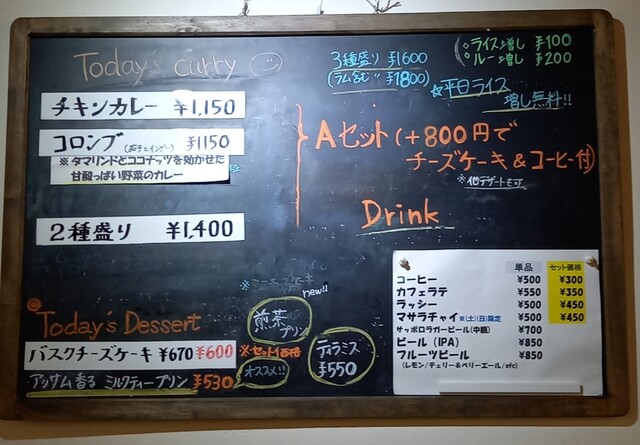 Today's curry
3種盛り ¥1600
(ラム含む〃 ¥1800)
ライス増し ¥100
ルー増し ¥200
☆平日ライス
増し無料!!
チキンカレー ¥1,150
コロンブ ¥1150
※タマリンドとココナッツを効かせた
甘酸っぱい野菜のカレー
2種盛り ¥1,400
Aセット(+800円で
チーズケーキ&コーヒー付)
※他デザートも可
Drink
単品 セット価格
コーヒー ¥500 ¥300
カフェラテ ¥550 ¥350
ラッシー ¥500 ¥450
マサラチャイ ※(土)(日)限定 ¥500 ¥450
サッポロラガービール(中瓶) ¥700
ビール (IPA) ¥850
フルーツビール ¥850
(レモン/チェリー&ベリーエール/etc)
Today's Dessert
バスクチーズケーキ ¥670 ¥600
※セット価格
アッサム香る ミルクティープリン ¥530
オススメ!!
new!!
煎茶
プリン
ティラミス
¥550